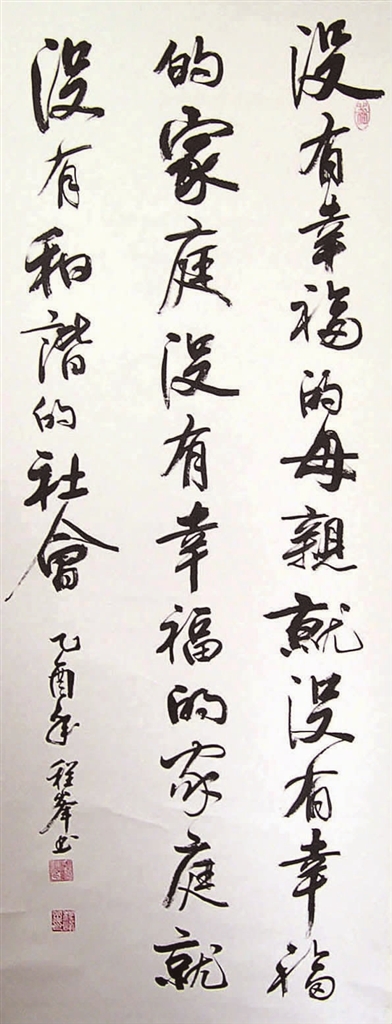 没有幸福的母親就没有幸福
的家庭没有幸福的家庭就
没有和谐的社會
乙酉年程峰书